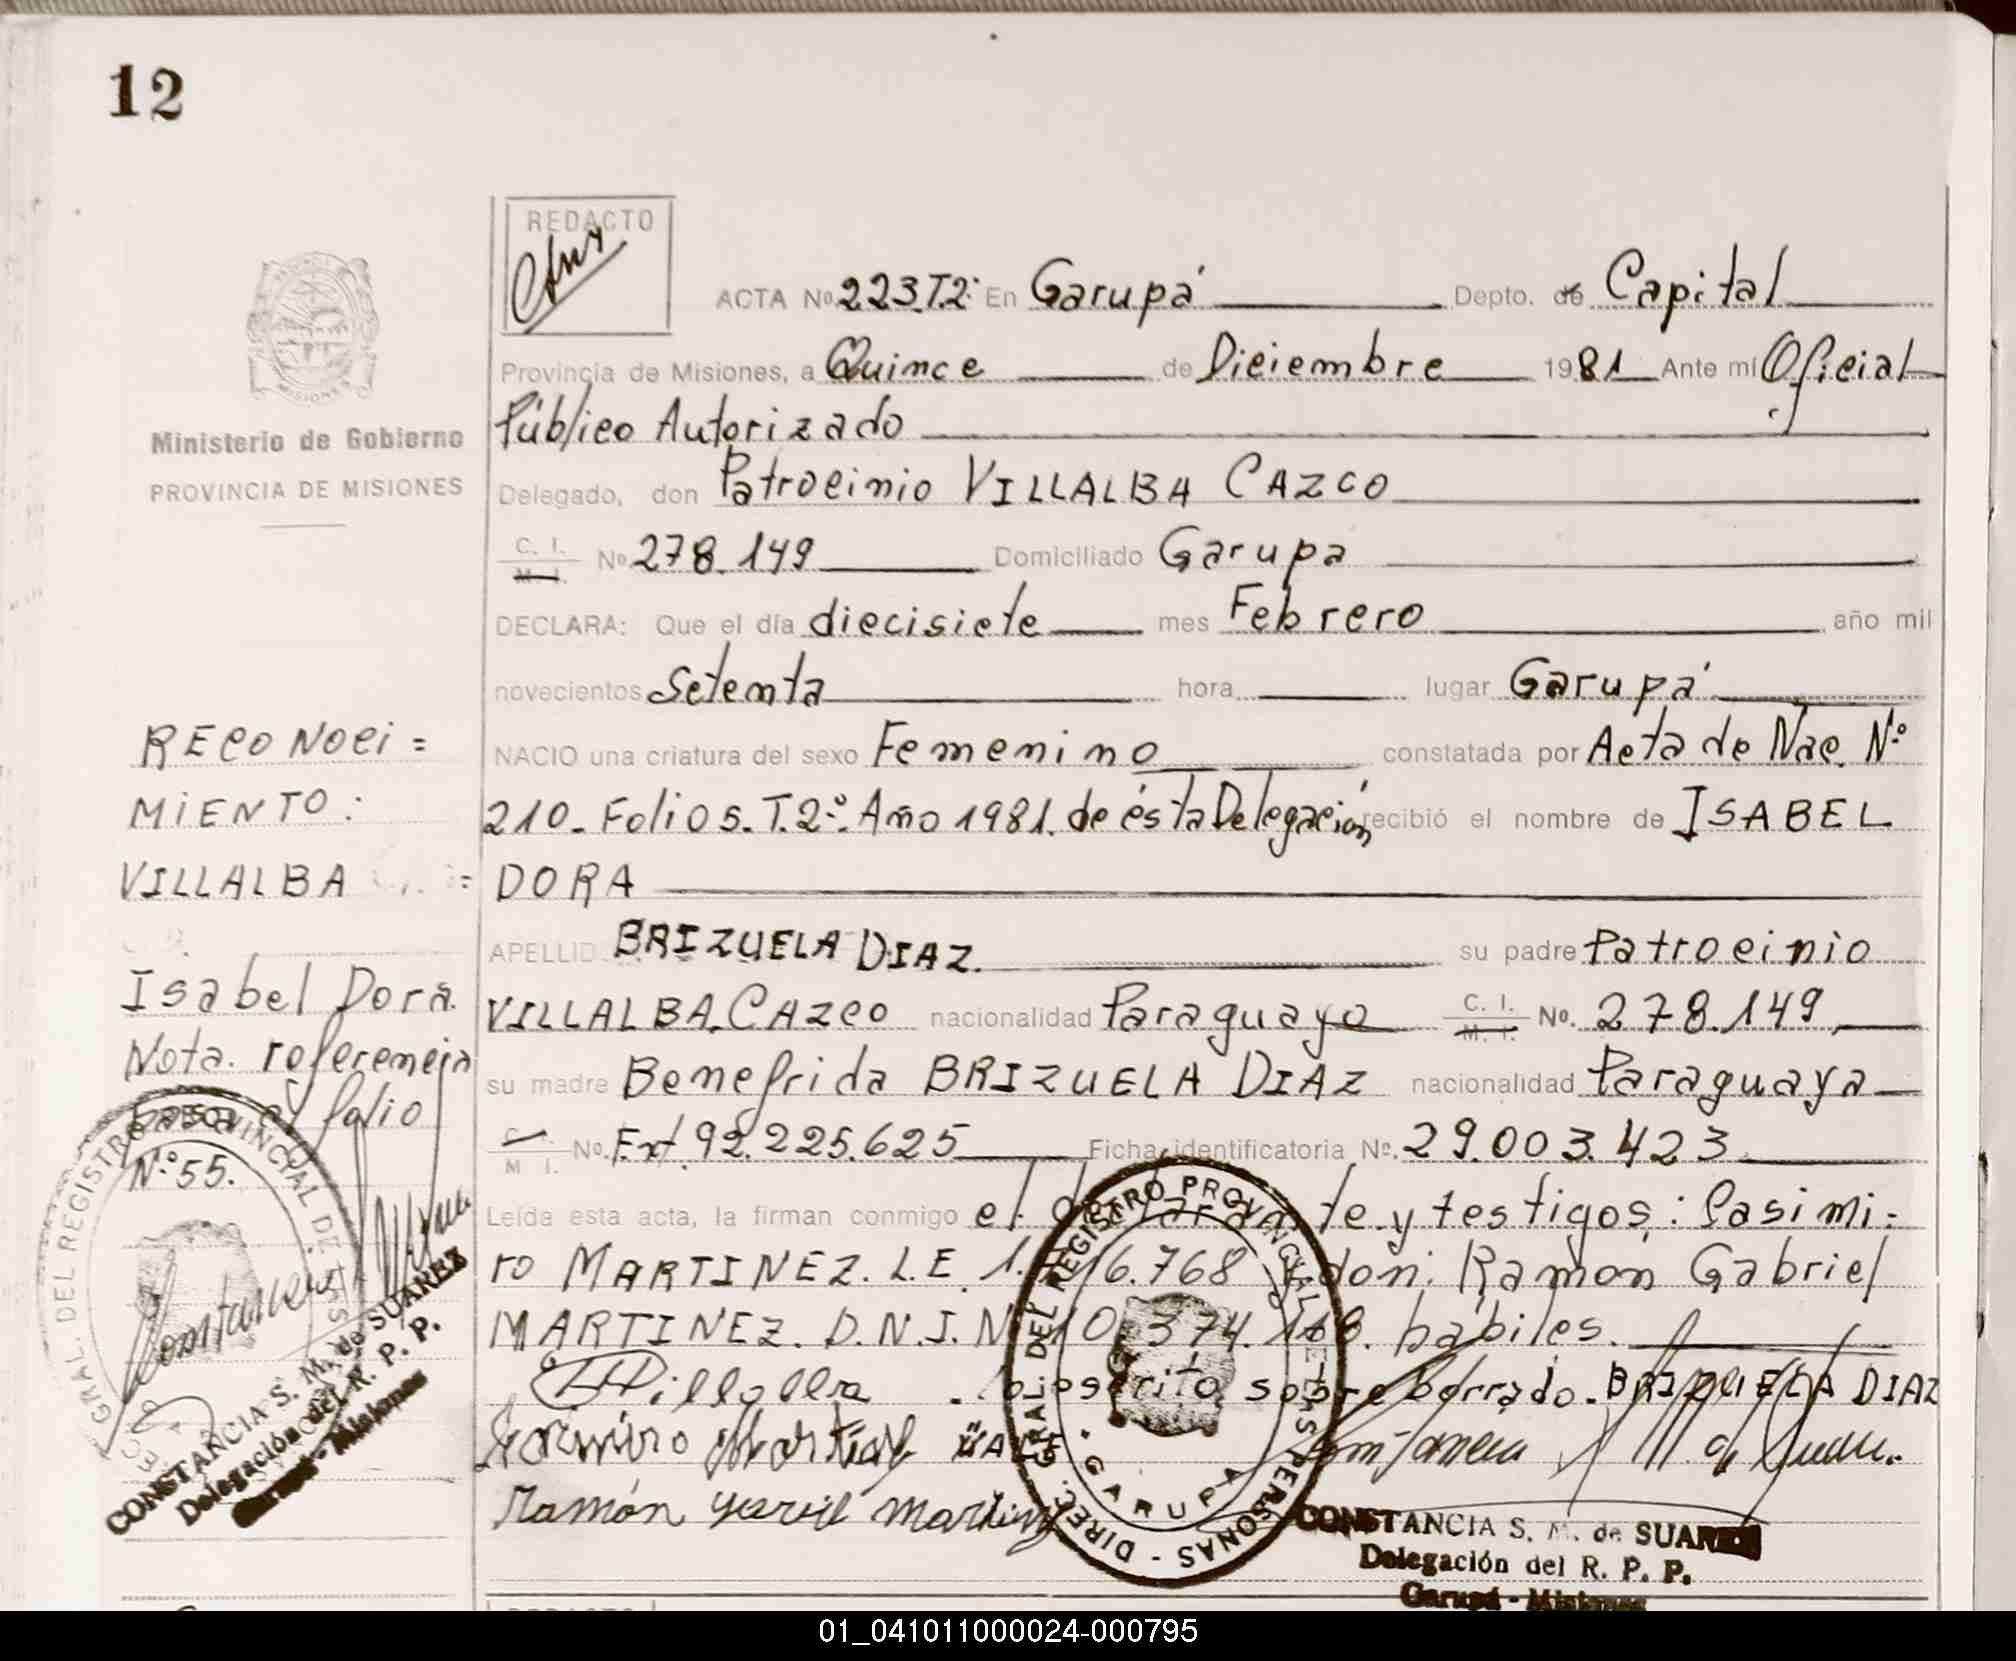 12
REDACTO
ACTA No. 223.T.2º En Garupá Depto. de Capital
Provincia de Misiones, a Quince de Diciembre 1981 Ante mí Oficial
Público Autorizado
Ministerio de Gobierno
PROVINCIA DE MISIONES
Delegado, don Patrocinio VILLALBA CAZCO
C. I. M. I. No. 278.149 Domiciliado Garupa
DECLARA: Que el día diecisiete mes Febrero año mil
novecientos Setenta hora lugar Garupá
NACIO una criatura del sexo Femenino constatada por Acta de Nac. Nº
210. Folio 5. T. 2º. Año 1981. de ésta Delegación recibió el nombre de ISABEL
DORA
APELLID BRIZUELA DIAZ. su padre Patrocinio
VILLALBA CAZCO nacionalidad Paraguayo C. I. M. I. No. 278.149
su madre Benefrida BRIZUELA DIAZ nacionalidad Paraguaya
M I. No. Ext. 92.225.625 Ficha identificatoria No. 29.003.423
Leída esta acta, la firman conmigo el declarante y testigos: Casimi-
ro MARTINEZ. L.E. 16.768 don. Ramón Gabriel
MARTINEZ. D.N.I. Nº 10.374.118. hábiles.
Villalba lo escrito sobre borrado. BRIZUELA DIAZ
RECONOCI=
MIENTO:
VILLALBA
Isabel Dora.
Nota. referencia
pasa al folio
Nº 55.
DIREC. GRAL. DEL REGISTRO PROVINCIAL DE LAS PERSONAS - GARUPA
GRAL. DEL REGISTRO PROVINCIAL DE LAS
Constancia
CONSTANCIA S. M. de SUAREZ
Delegación del R. P. P.
Garupá - Misiones
Ramón Gabriel Martinez
CONSTANCIA S. M. de SUAREZ
Delegación del R. P. P.
Garupá - Misiones
01_041011000024-000795